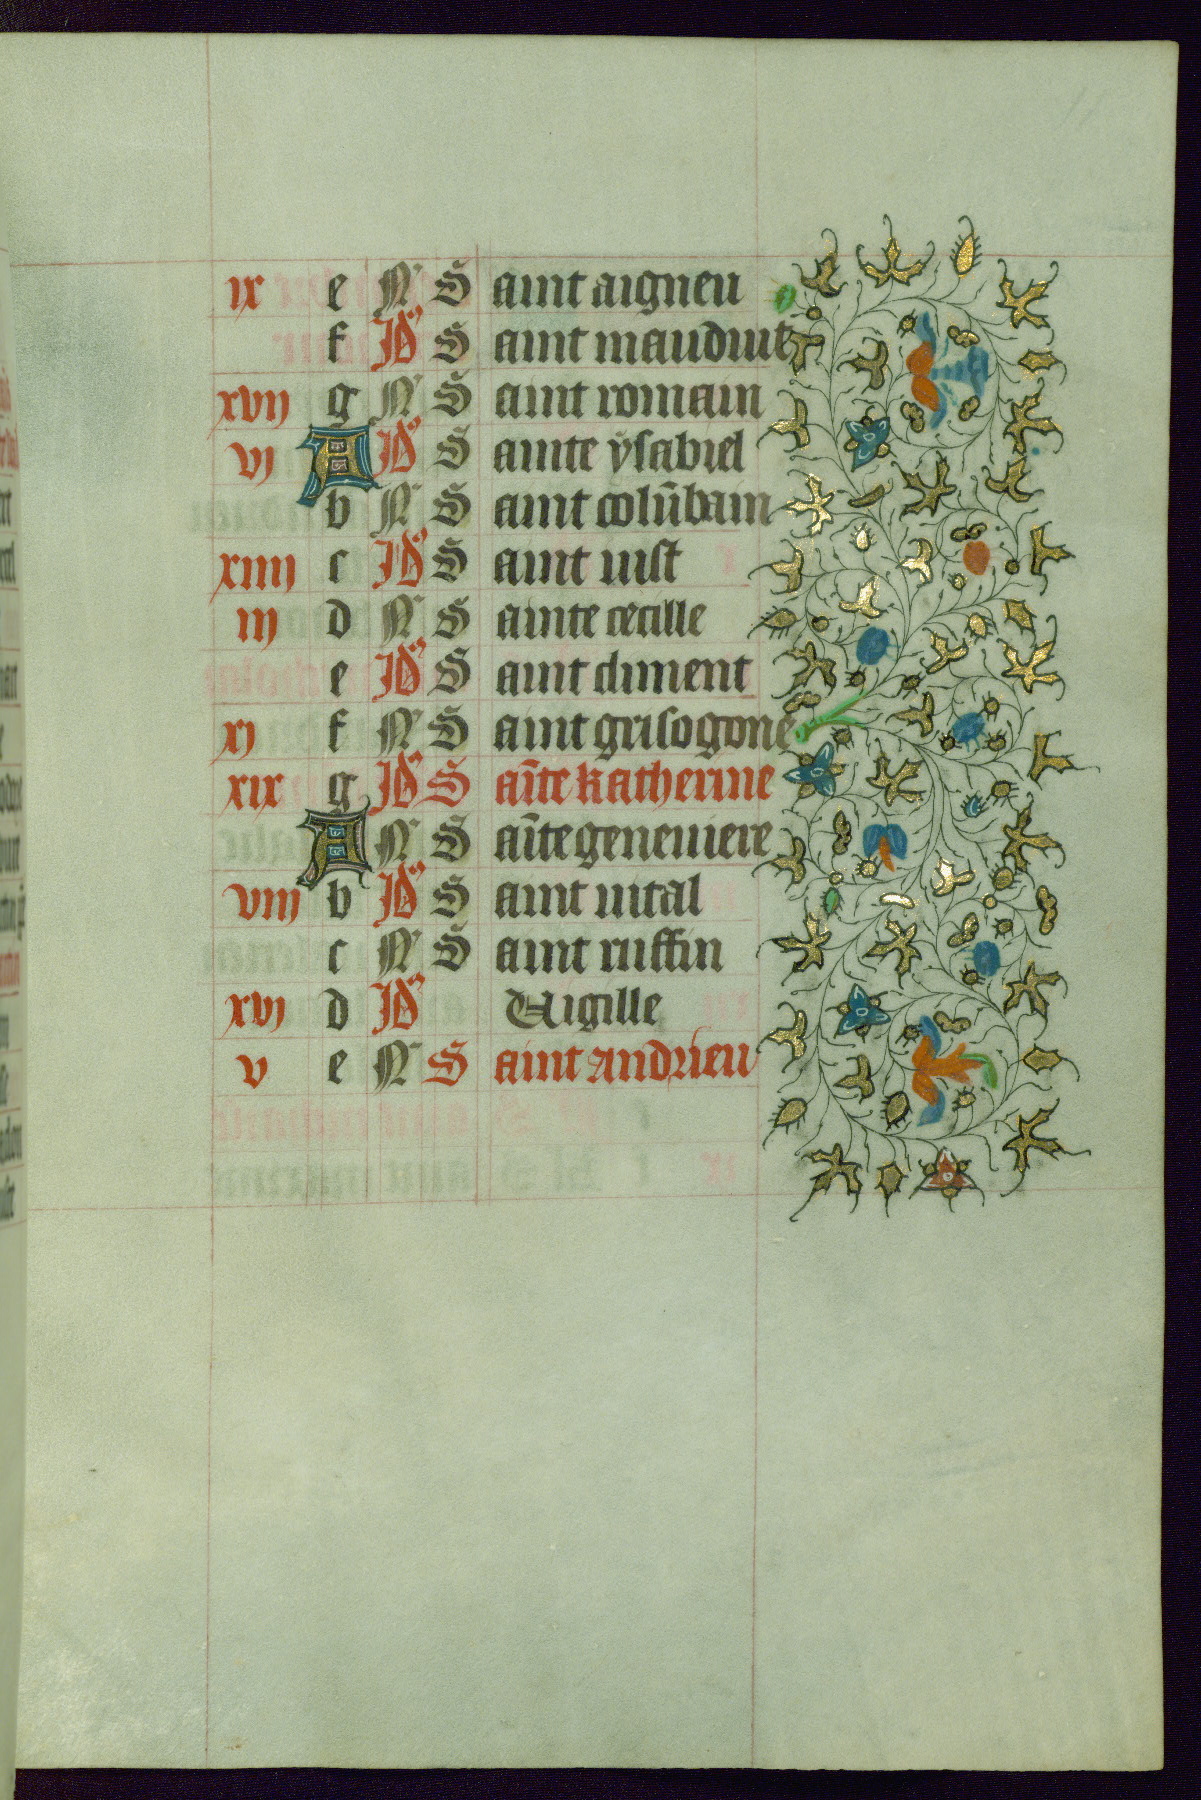 ix e N S aint aigneu
f Jd S aint mauduit
xvij g N S aint romain
vj A Jd S ainte ÿsabiel
b N S aint colu̅bain
xiiij c Jd S aint iust
iij d N S ainte cecille
e Jd S aint climent
xj f N S aint grisogone
xix g Jd S ai̅te katherine
A N S ai̅te geneuiere
viij b Jd S aint uital
c N S aint ruffin
xvj d Jd Uigille
v e N S aint andrieu